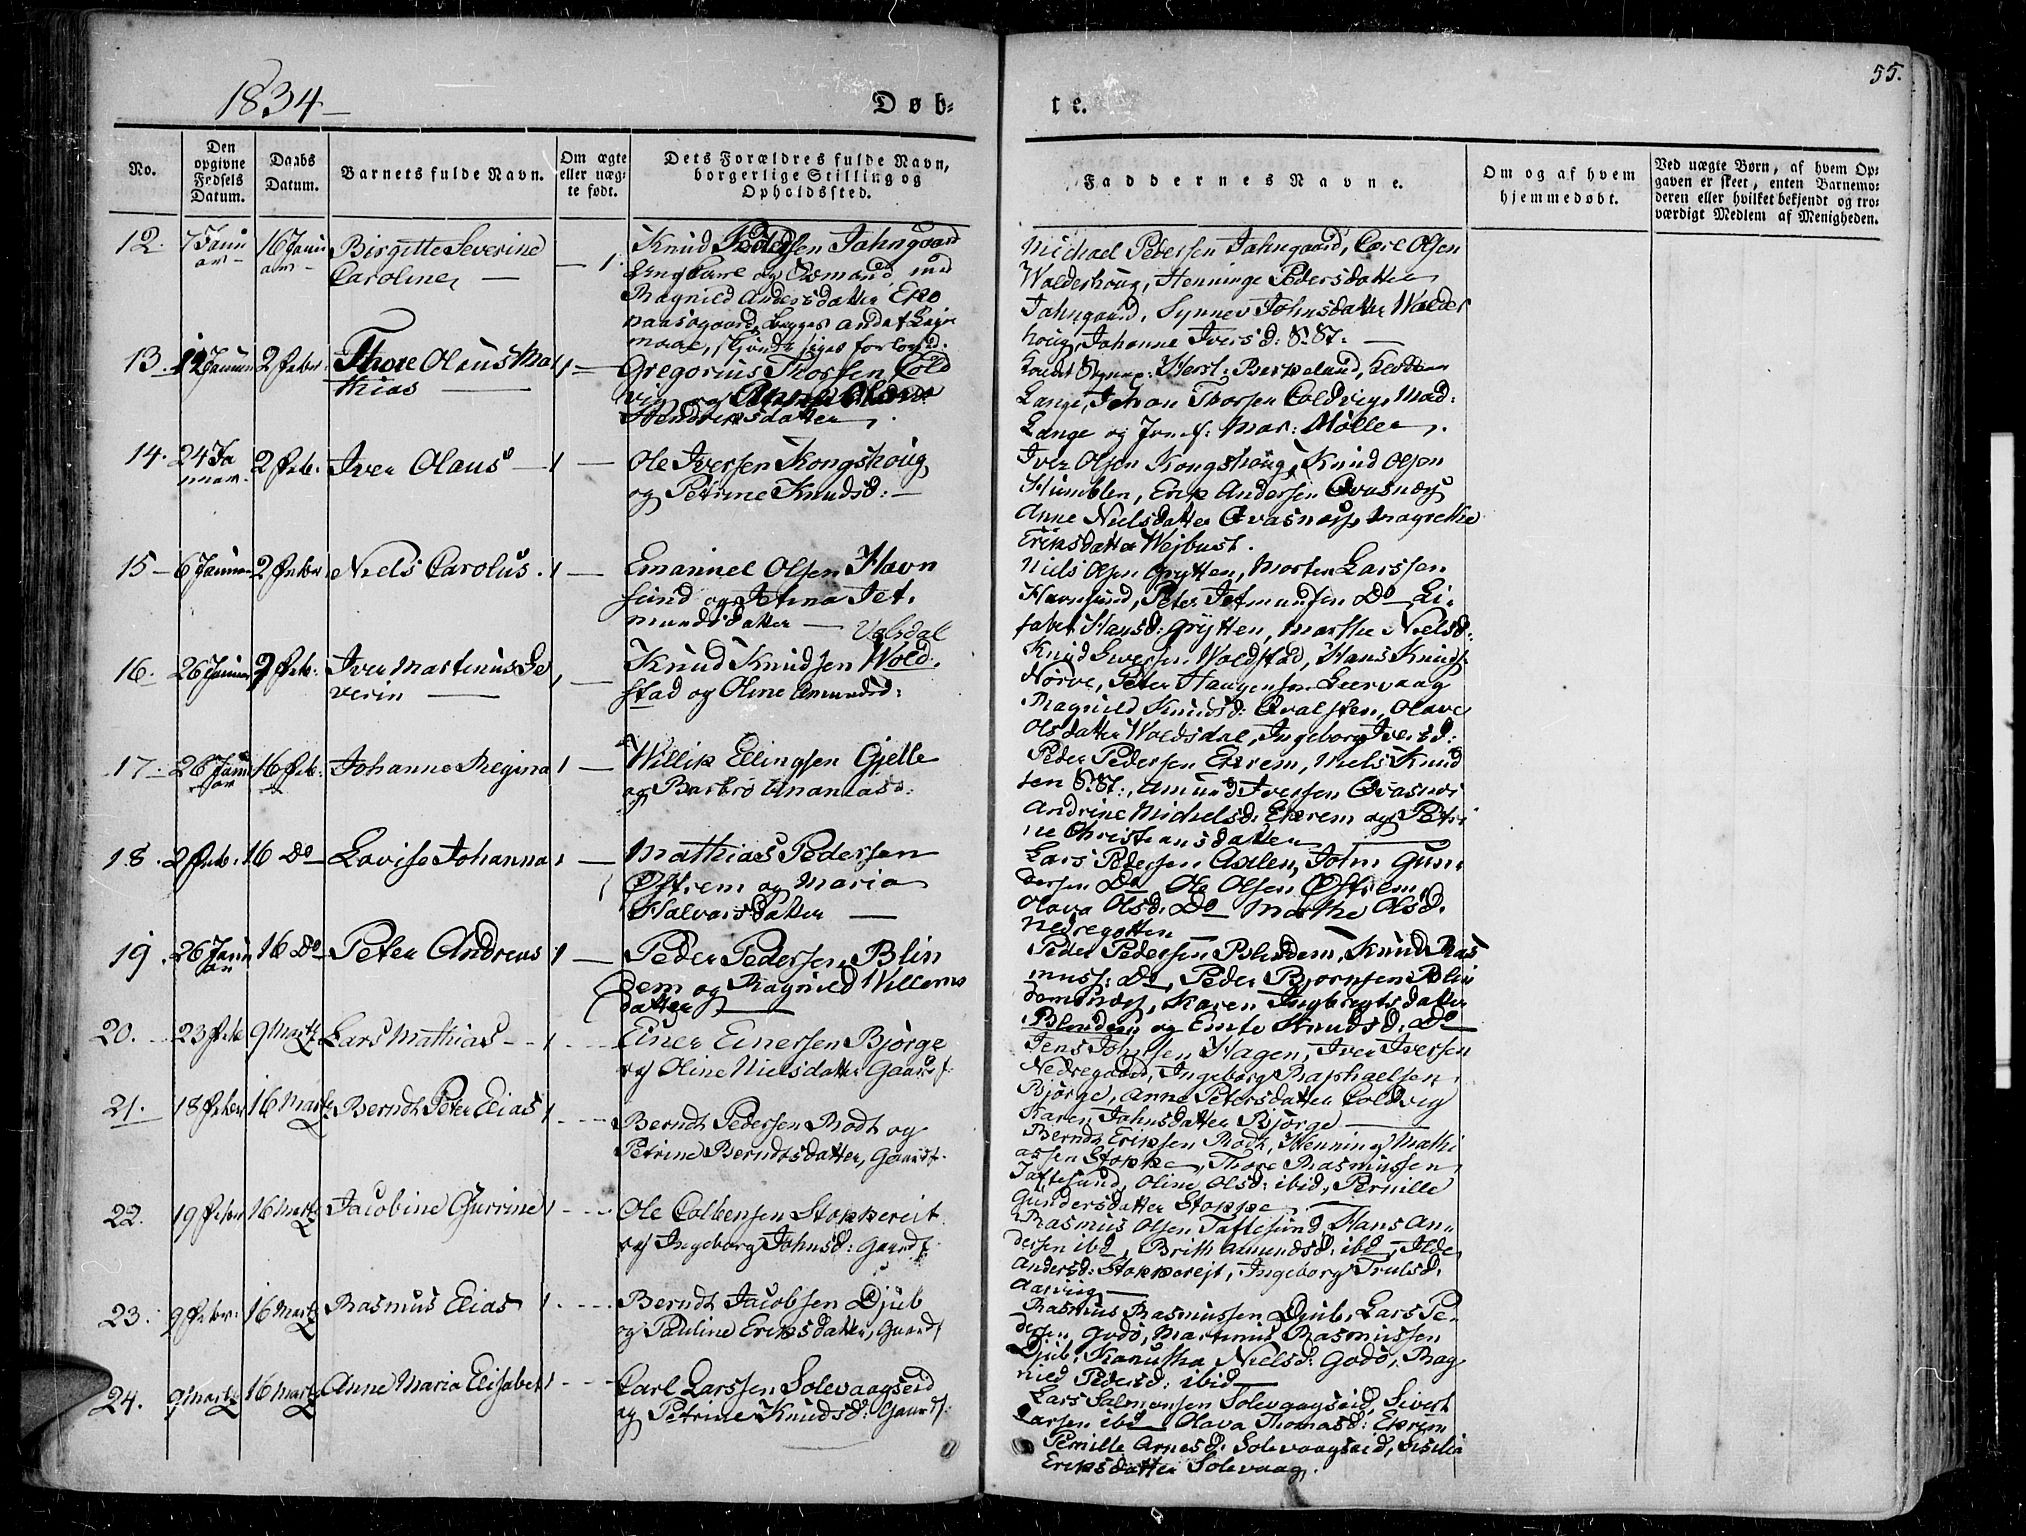 55.
1834
Døb-
te.
No.
Den opgivne Fødsels Datum.
Daabs Datum.
Barnets fulde Navn.
Om ægte eller uægte født.
Dets Forældres fulde Navn, borgerlige Stilling og Opholdssted.
Faddernes Navne.
Om og af hvem hjemmedøbt.
Ved uægte Børn, af hvem Opgaven er skeet, enten Barnemoderen eller hvilket bekjendt og troværdigt Medlem af Menigheden.
12. 7 Janu 16 Janu Birgitte Severine
ar- ar-
Caroline,
1
Knud Pedersen Jahngaard
Ungkarl og med
Ragnild Andersdatter
begges andet Leier
maal,
Michael Pedersen Jahngaard, Carl Olsen
Walderhoug, Henninge Pedersdatter
Jahngaard, Synnev Johnsdatter Walder
houg, Johanne Iversd:
13. 12 Januar 2 Feber Thore Olaus Ma
thias
1
Gregorius Thossen Cold
vig og
Hendricksdatter.
Lange, Johan Thorsen Coldvig, Mad:
Lange og Mar: Møller.
14. 24 Ja 2 Feb. Iver Olaus
nuar.
1
Ole Iversen Kongshoug
og Petrine Knudsd:
Iver Olsen Kongshoug, Knud Olsen
Humblen, Erik Andersen Qvasnæs
Anne Nielsdatter Qvasnæs, Magrethe
Eriksdatter Wejbust.
15 6 Januar 2 Feber Niels Carolus.
1
Emanuel Olsen Havn
sund og Jetmund
mundsdatter
Niels Olsen Grytten, Morten Larssen
Havnsund, Peter Jetmundsen Do Li-
sabet Hansd: Grytten, Marthe Nielsd:
Valsdal
16. 26 Januar 2 Feb: Iver Martinus Se
verin
1
Knud Knudsen Wold
stad og Oline Amundsd:
Knud Iversen Woldstad, Hans Knuds:
Nørve, Peter Haagensen Leervaag
Ragnild Knudsd: Olave
Olsdatter Woldsdal, Ingeborg Iversd:
17 26 Janu 16 Feb: Johanne Regina
ar
1
Willik Ellingsen Gjelle
og Barbro Ananiasd:
Peder Pedersen Ekrem, Niels Knud
sen Amund Iversen Qvasnes
Andrine Michelsd: Ekrem og Petri
ne Christiansdatter
18. 2 Feb. 16 Do Lovise Johanna
1
Mathias Pedersen
Østrem og Maria
Halvorsdatter
Lars Pedersen Axlen, John Gun-
dersen Do Ole Olsen Østrem,
Olava Olsd. Do Marthe Olsd.
Nedregotten
19. 26 Janu 16 Do Peter Andreas
ar
1
Peder Pedersen Blin
dem og Ragnild Willems
datter
Peder Pedersen Blindem, Knud Ras
muss: Do, Peder Bjørnsen Blin
demsnæs, Karen Ingebrigtsdatter
Blindem og Knudsd. Do
20. 23 Feb 9 Martz Lars Mathias
1
Einer Einersen Bjørge
og Oline Nielsdatter Gaardf.
Jens Johnsen Hagen, Iver Iversen
Nedregaard, Ingeborg Raphaelsen
Bjørge, Anne Petersdatter Coldvig
Karen Jahnsdatter Bjørge
21. 18 Feber 16 Martz Berndt Peter Elias
1
Berndt Pedersen Rodt og
Petrine Berndtsdatter, Gaardf.
Berndt Eriksen Rodt, Henning Mathi
assen Stokke, Thore Rasmussen,
Taftesund, Oline Olsd: ibid, Pernille
Gundersdatter Stokke
22. 19 Feber 16 Martz Jacobine Gurrine
1
Ole Colbensen Stokkereit
og Ingeborg Johnsd: Gaardf:
Rasmus Olsen Taftesund, Hans An-
dersen ibid, Brith Amundsd. ibid,
Andersd: Stokkereit, Ingeborg Trulsd.
Aarvig
23. 9 Feber: 16 Martz Rasmus Elias
1
Berndt Jacobsen Djub
og Pauline Eriksdatter, Gaardf
Rasmus Rasmussen Djub, Lars Pe-
dersen, Godø, Martinus Rasmussen
Djub, Nielsd: Godø, Rag
nild Pedersd: ibid
24. 9 Martz 16 Martz Anne Maria Elisabet
1
Carl Larssen Solevaagseid
og Petrine Knudsd: Gaardf:
Lars Salmonsen Solevaagseid, Sivert
Larsen ibid Olava Thomasd: Ekrem
Pernille Arnesd. Solevaagseid, Sisilia
Eriksdatter Solevaag.